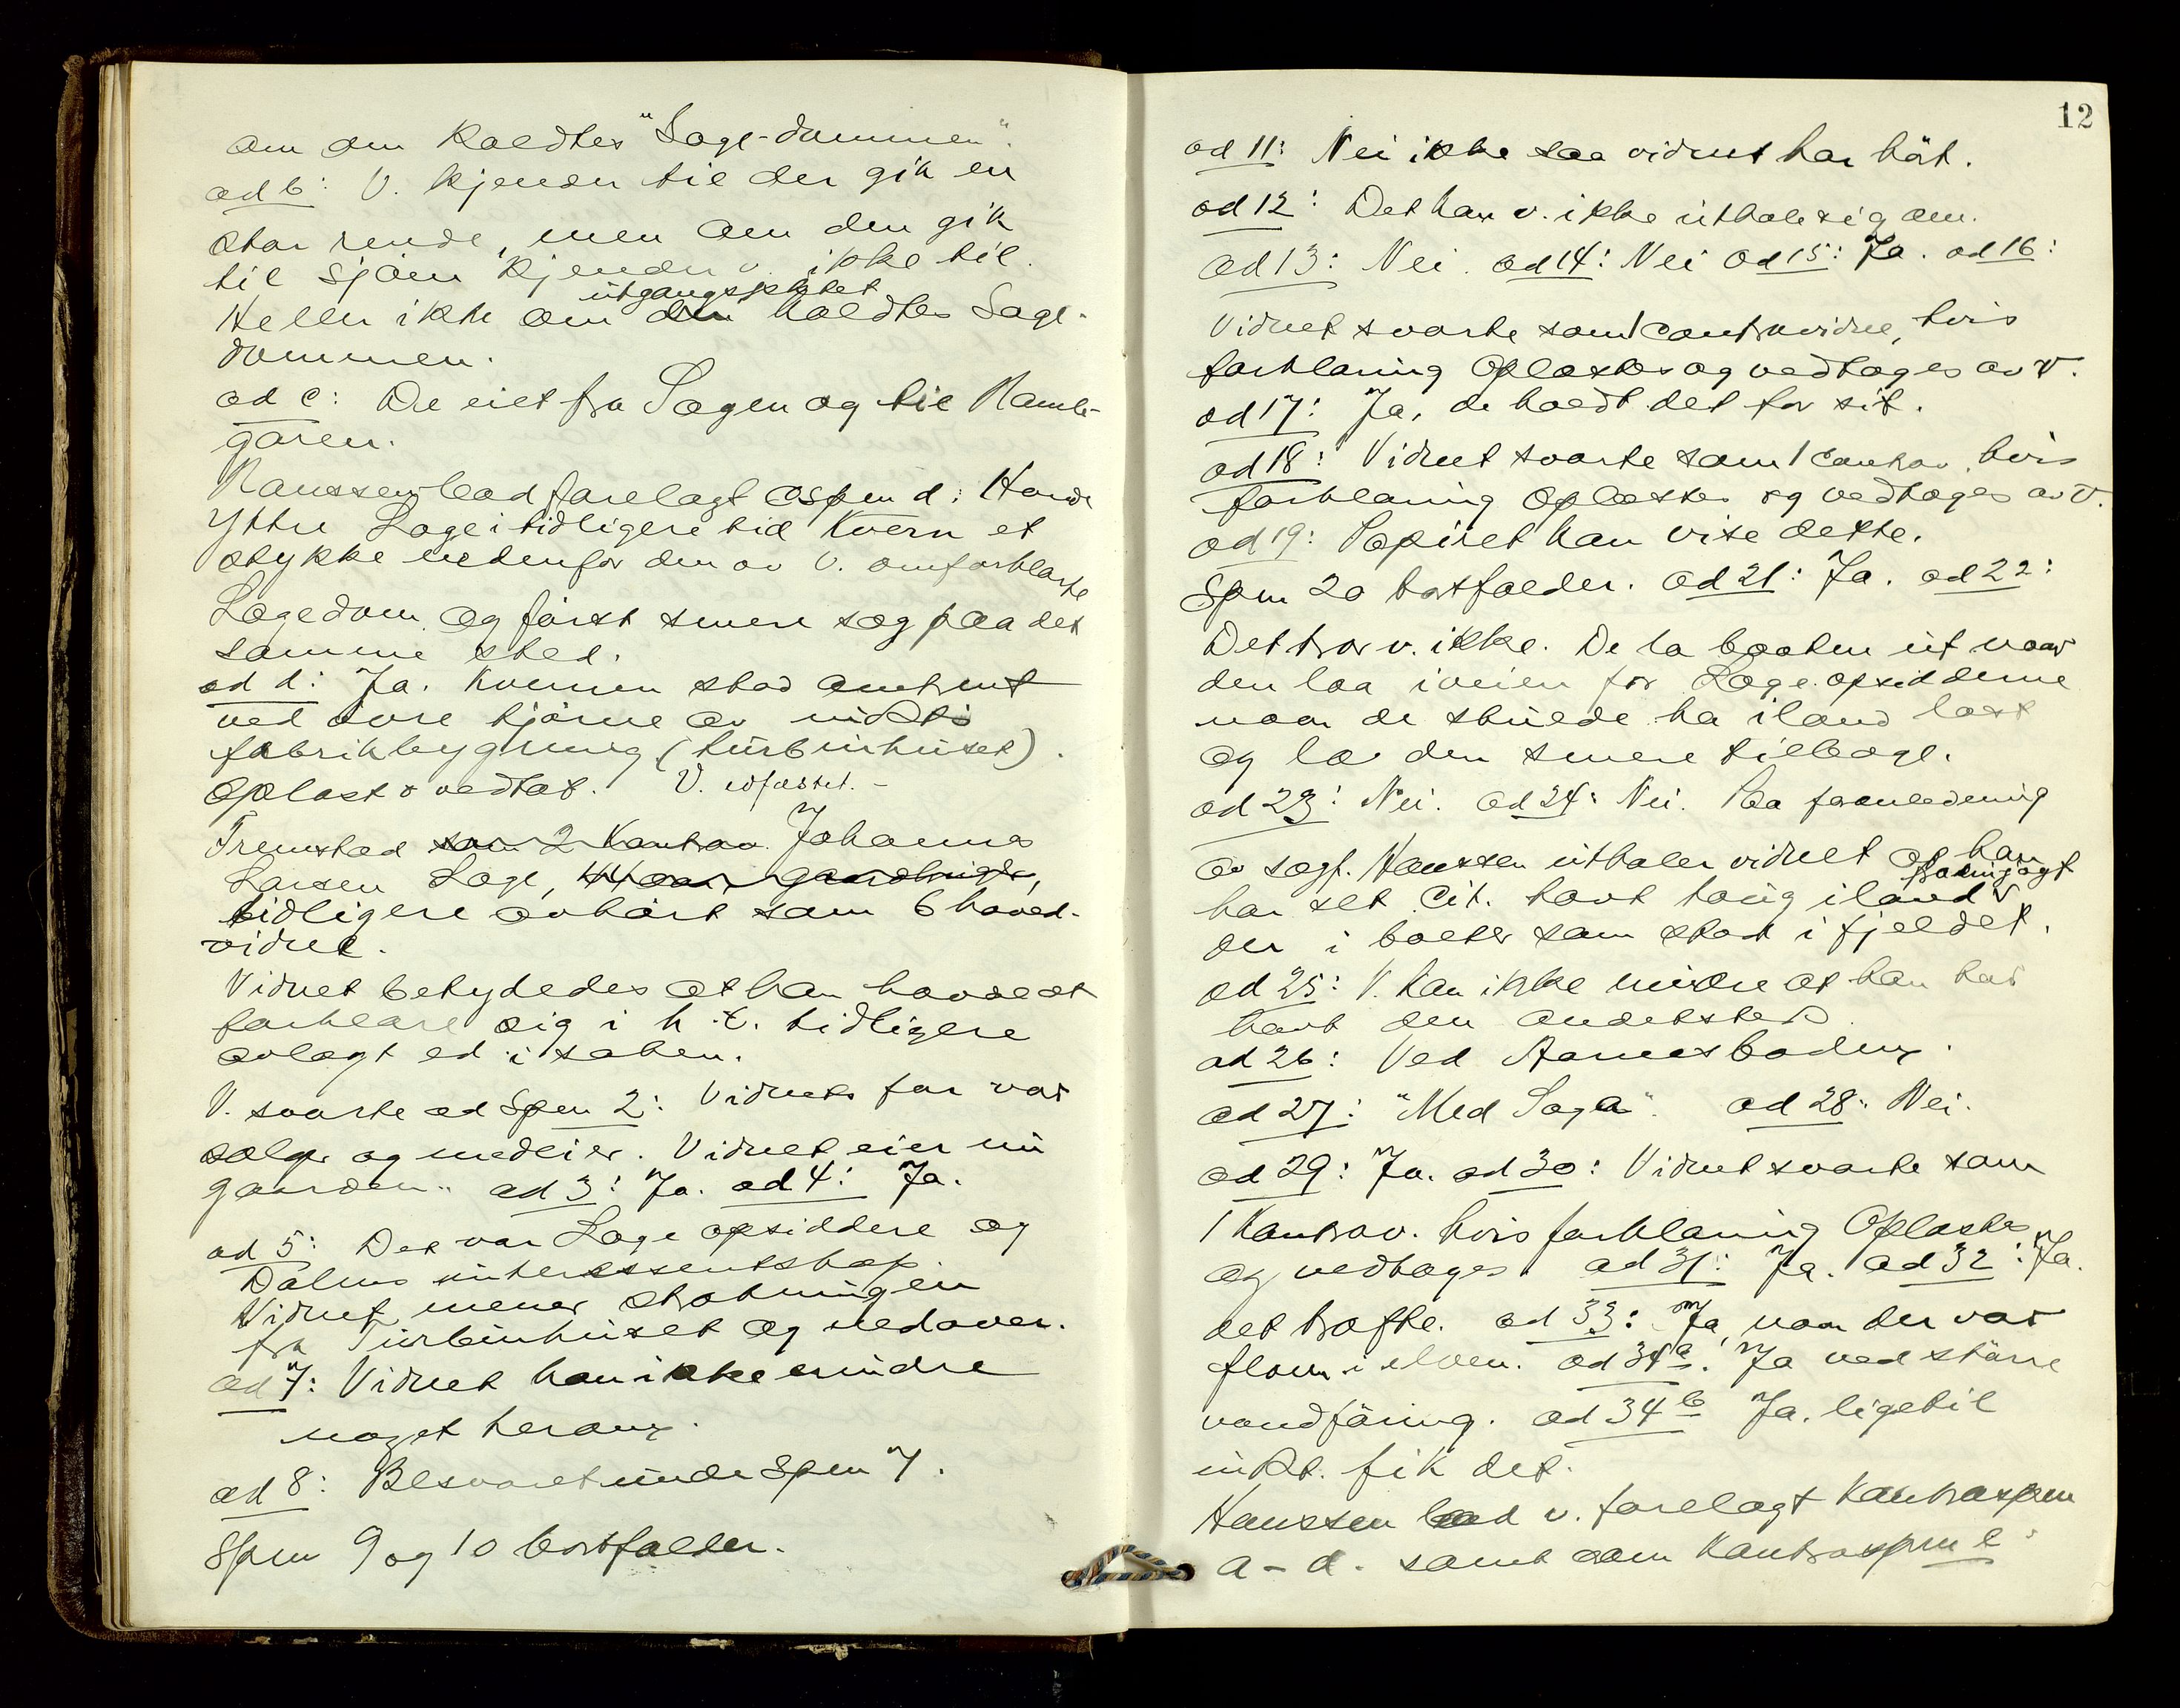 om den kaldtes "Sage-dammen".
ad b: V. kjender til der gik en
stor rende, men om den gik
til sjøen kjender v. ikke til.
Heller ikke om utgangspktet kaldtes Sage-
dammen.
ad c: De eiet fra Sagen og til
garen.
Hanssen lod forelagt spm d: Havde
Yttre Lage i tidligere tid Kvern et
stykke nedenfor den av V. omforklarte
Sagedam og først senere sag paa det
samme sted.
ad d: Ja. Kvernen stod omtrent
ved øvre hjørne av
fabrikbygning (turbinhuset).
Oplæst & vedtat. V. edfæstet. -
Fremstod som 2 Kontrav. Johannes
Larsen Lage, 44 aar, gaardbruger,
tidligere avhørt som 6 hoved-
vidne.
Vidnet betydedes at han havde at
forklare sig i h.t. tidligere
avlagt ed i saken.
V. svarte ad Spm 2: Vidnets far var
sælger og medeier. Vidnet eier nu
gaarden. ad 3: Ja. ad 4: Ja.
ad 5: Det var Lage opsiddere og
Dalens interessentskap.
Vidnet mener strækningen
fra Turbinhuset og nedover.
ad 7: Vidnet kan ikke erindre
noget herom.
ad 8: Besvaret under Spm 7.
Spm 9 og 10 bortfalder.
12
ad 11: Nei ikke saa vidnet har hørt.
ad 12: Det kan v. ikke uttale sig om.
ad 13: Nei. ad 14: Nei ad 15: Ja. ad 16:
Vidnet svarte som 1 contravidne, hvis
forklaring oplæstes og vedtages av V.
ad 17: Ja, de holdt det for sit.
ad 18: Vidnet svarte som 1 contrav. hvis
forklaring oplæstes og vedtages av V.
ad 19: Papiret kan vise dette.
Spm 20 bortfalder. ad 21: Ja. ad 22:
Det tror v. ikke. De la baaten ut naar
den laa i veien for Lage opsidderne
naar de skulde ha iland last
og la den senere tilbage.
ad 23: Nei. ad 24: Nei. Paa foranledning
av sagf. Hanssen uttaler vidnet at han
har set Cit. havt taug iland
der i bolter som stod i fjeldet.
ad 25: V. kan ikke mindre at han har
havt den andetsted.
ad 26: Ved Aarnesboden.
ad 27: "Med Saga". ad 28: Nei.
ad 29: Ja. ad 30: Vidnet svarte som
1 Kontrav. hvis forklaring Oplæstes
og vedtages. ad 31: Ja. ad 32: Ja.
det trafte. ad 33: Ja, naar der var
flom i elven. ad 34a: Ja ved større
vandføring. ad 34b Ja, ligetil
fik det.
Hanssen lod v. forelagt Kontraspm
a - d. samt som Kontraspm e: